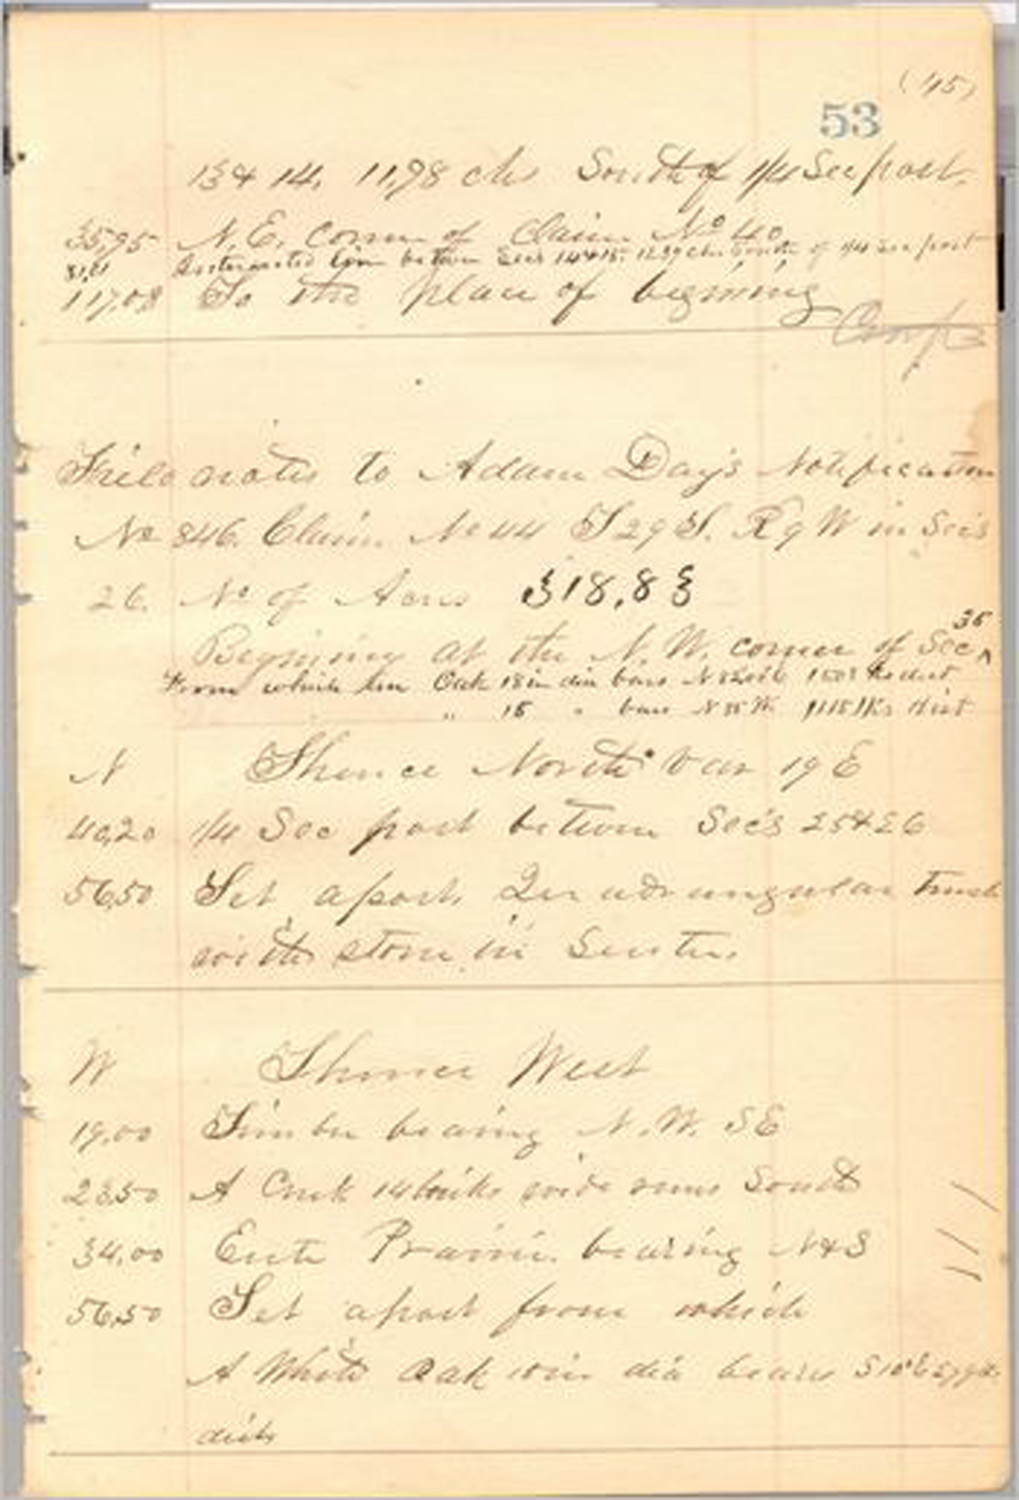 (45)
53
13 & 14. 11,98 chs South of 1/4 Sec post.
35,95 N.E. Corner of Claim No 40
81,21 Intersected line between Secs 14 & 15. 12.39 chs South of 1/4 Sec post
117,08 To the place of begining
Comp
Field notes to Adam Day's Notification
No 846. Claim No 44 T 29 S. R 9 W in Sec's
26. No of Acres 318,83
Begining at the N.W. corner of Sec 36
From which an Oak 18 in dia bears 1503 lks dist
" 15 " bears N 85 W 1115 lks dist
N Thence North Var 19 E
40,20 1/4 Sec post between Sec's 25 & 26
56,50 Set a post. Quadrangular trench
with stone in Senter.
W Thence West
19,00 Timber bearing N.W. SE
23,50 A Creek 14 links wide runs South
34,00 Enter Prairie. bearing N & S
56,50 Set a post from which
A White Oak 10 in dia bears S 10° E
dist.